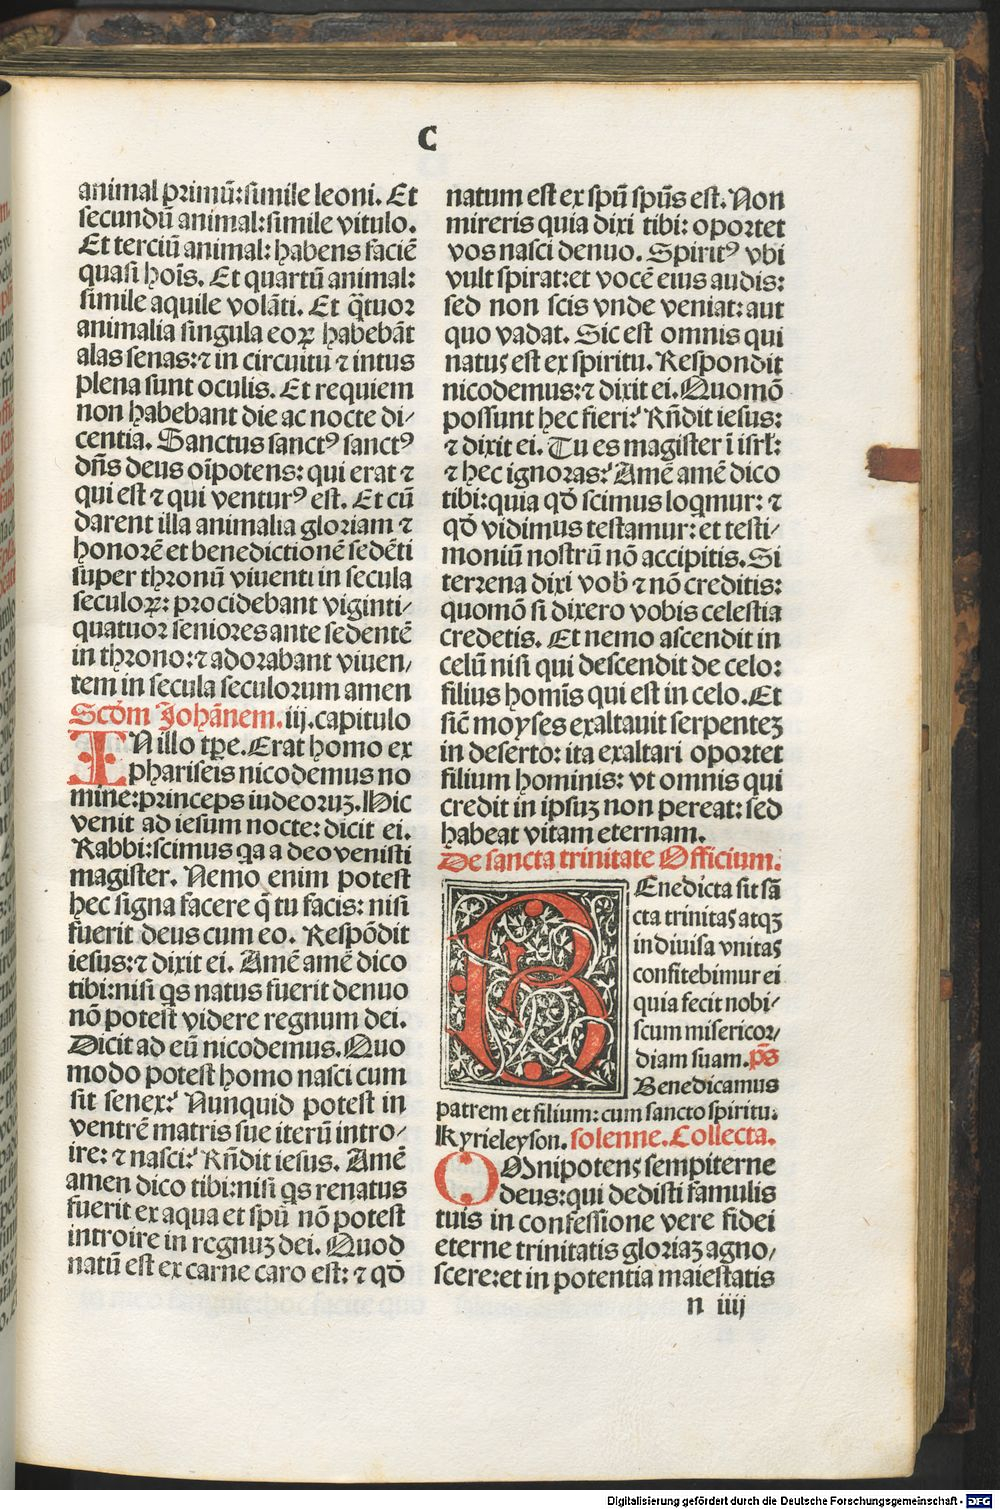 C
animal primū: simile leoni. Et
secundū animal: simile vitulo.
Et terciū animal: habens faciē
quasi hoīs. Et quartū animal:
simile aquile volāti. Et q̄tuor
animalia singula eoꝝ habebāt
alas senas: ⁊ in circuitu ⁊ intus
plena sunt oculis. Et requiem
non habebant die ac nocte di⸗
centia. Sanctus sanctꝰ sanctꝰ
dn̄s deus oīpotens: qui erat ⁊
qui est ⁊ qui venturꝰ est. Et cū
darent illa animalia gloriam ⁊
honorē et benedictionē sedēti
super thronū viuenti in secula
seculoꝝ: procidebant viginti⸗
quatuor seniores ante sedentē
in throno: ⁊ adorabant viuen⸗
tem in secula seculorum amen
Scd̄m Johānem. iij. capitulo
IN illo tp̄e. Erat homo ex
phariseis nicodemus no
mine: princeps iudeoruꝫ. Hic
venit ad iesum nocte: dicit ei.
Rabbi: scimus qa a deo venisti
magister. Nemo enim potest
hec signa facere q̄ tu facis: nisi
fuerit deus cum eo. Respōdit
iesus: ⁊ dixit ei. Amē amē dico
tibi: nisi qs natus fuerit denuo
nō potest videre regnum dei.
Dicit ad eū nicodemus. Quo
modo potest homo nasci cum
sit senex? Nunquid potest in
ventrē matris sue iterū intro⸗
ire: ⁊ nasci? Rn̄dit iesus. Amē
amen dico tibi: nisi qs renatus
fuerit ex aqua et spū nō potest
introire in regnuꝫ dei. Quod
natū est ex carne caro est: ⁊ qd̄
natum est ex spū spūs est. Non
mireris quia dixi tibi: oportet
vos nasci denuo. Spiritꝰ vbi
vult spirat: et vocē eius audis:
sed non scis vnde veniat: aut
quo vadat. Sic est omnis qui
natus est ex spiritu. Respondit
nicodemus: ⁊ dixit ei. Quomō
possunt hec fieri? Rn̄dit iesus:
⁊ dixit ei. Tu es magister ī isrl̄:
⁊ hec ignoras? Amē amē dico
tibi: quia qd̄ scimus loqmur: ⁊
qd̄ vidimus testamur: et testi⸗
moniū nostrū nō accipitis. Si
terrena dixi vob̄ ⁊ nō creditis:
quomō si dixero vobis celestia
credetis. Et nemo ascendit in
celū nisi qui descendit de celo:
filius homīs qui est in celo. Et
sic̄ moyses exaltauit serpenteꝫ
in deserto: ita exaltari oportet
filium hominis: vt omnis qui
credit in ipsuꝫ non pereat: sed
habeat vitam eternam.
De sancta trinitate Officium.
BEnedicta sit sā
cta trinitas atqꝫ
indiuisa vnitas
confitebimur ei
quia fecit nobi⸗
scum misericor⸗
diam suam. ps̄
Benedicamus
patrem et filium: cum sancto spiritu.
Kyrieleyson. solenne. Collecta.
OMnipotens sempiterne
deus: qui dedisti famulis
tuis in confessione vere fidei
eterne trinitatis gloriaꝫ agno⸗
scere: et in potentia maiestatis
n iiij
Digitalisierung gefördert durch die Deutsche Forschungsgemeinschaft - DFG